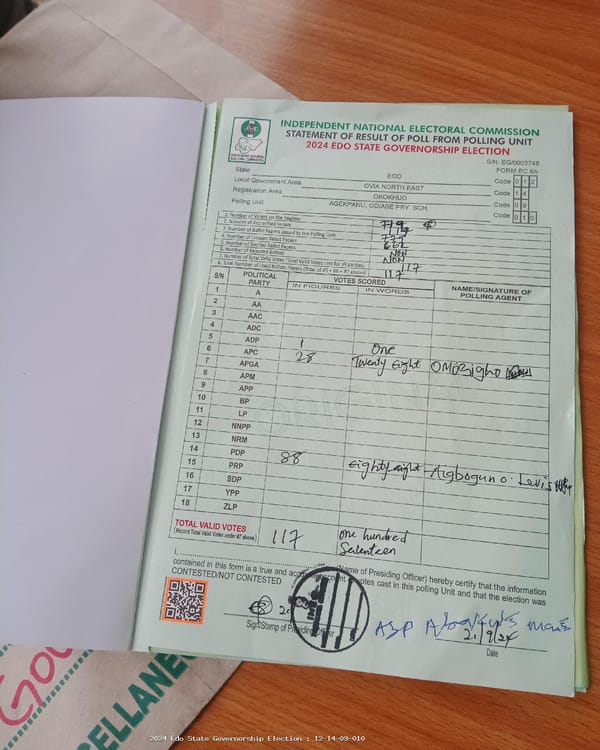 INDEPENDENT NATIONAL ELECTORAL COMMISSION
STATEMENT OF RESULT OF POLL FROM POLLING UNIT
2024 EDO STATE GOVERNORSHIP ELECTION
S/N: EG/0003748
FORM EC 8A
State EDO Code 0 1 2
Local Government Area OVIA NORTH EAST Code 1 4
Registration Area OKOKHUO Code 0 9
Polling Unit AGEKPANU, ODIASE PRY. SCH. Code 0 1 0
1. Number of Voters on the Register 779
2. Number of Accredited Voters
3. Number of Ballot Papers Issued to the Polling Unit 779
4. Number of Unused Ballot Papers 662
5. Number of Spoiled Ballot Papers NON
6. Number of Rejected Ballots NON
7. Number of Total Valid Votes (Total Valid Votes cast for all parties) 117
8. Total Number of Used Ballots Papers (Total of #5 + #6 + #7 above) 117
S/N POLITICAL PARTY VOTES SCORED NAME/SIGNATURE OF POLLING AGENT
IN FIGURES IN WORDS
1 A
2 AA
3 AAC
4 ADC
5 ADP 1 One
6 APC 28 Twenty Eight OMOzigho
7 APGA
8 APM
9 APP
10 BP
11 LP
12 NNPP
13 NRM
14 PDP 88 eighty eight Aigbogun o. Levis
15 PRP
16 SDP
17 YPP
18 ZLP
TOTAL VALID VOTES 117 one hundred Seventeen
(Record Total Valid Votes under #7 above)
I, (Name of Presiding Officer) hereby certify that the information
contained in this form is a true and votes cast in this polling Unit and that the election was
CONTESTED/NOT CONTESTED
ASP
21/9/24
Sign/Stamp of Presiding Officer
Date
CELLANE
2024 Edo State Governorship Election : 12-14-09-010